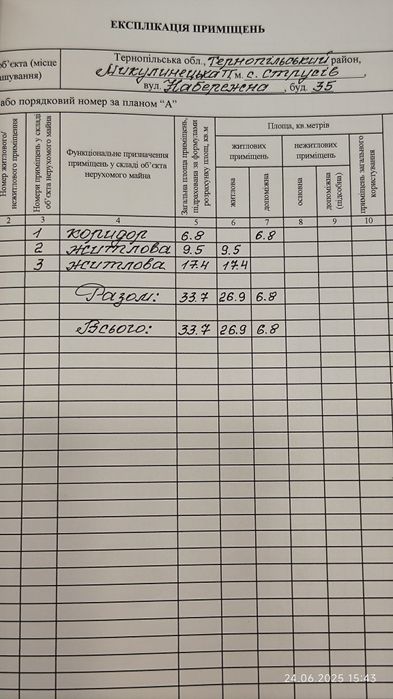 ЕКСПЛІКАЦІЯ ПРИМІЩЕНЬ
об'єкта (місце Тернопільська обл., Тернопільський район,
ашування) Микулинецька ТГ м. с. Струсів,
вул. Набережна, буд. 35
або порядковий номер за планом “А”
Номер житлового/ нежитлового приміщення
Номери приміщень у складі об'єкта нерухомого майна
Функціональне призначення приміщень у складі об'єкта нерухомого майна
Загальна площа приміщень, підрахована за формулами розрахунку площ, кв.м
Площа, кв.метрів
житлових приміщень
нежитлових приміщень
житлова
допоміжна
основна
допоміжна (підсобна)
приміщень загального користування
2 3 4 5 6 7 8 9 10
1 коридор 6.8 6.8
2 житлова 9.5 9.5
3 житлова 17.4 17.4
Разом: 33.7 26.9 6.8
Всього: 33.7 26.9 6.8
24.06.2025 15:43